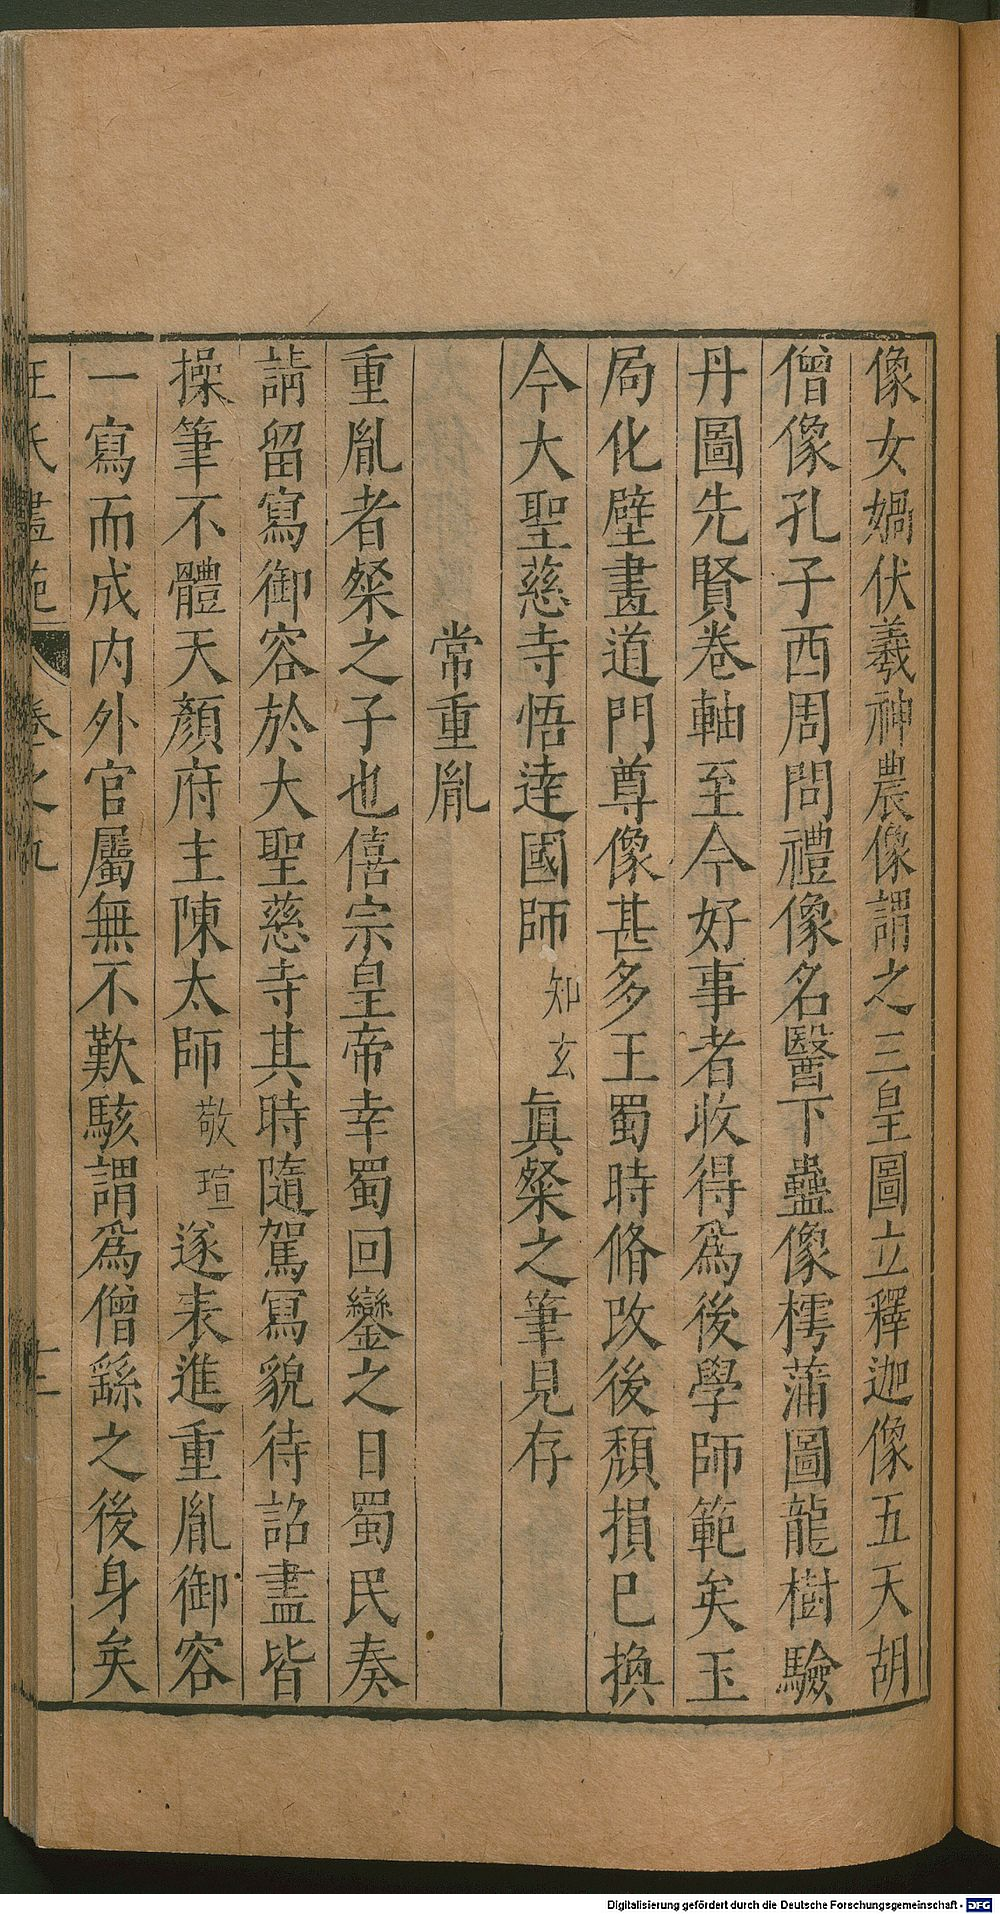 像女媧伏羲神農像謂之三皇圖立釋迦像五天胡
僧像孔子西周問禮像名醫下蠱像樗蒲圖龍樹驗
丹圖先賢卷軸至今好事者收得爲後學師範矣玉
局化壁畫道門尊像甚多王蜀時脩改後頹損已換
今大聖慈寺悟達國師知玄眞粲之筆見存
常重胤
重胤者粲之子也僖宗皇帝幸蜀回鑾之日蜀民奏
請留寫御容於大聖慈寺其時隨駕寫貌待詔盡皆
操筆不體天顏府主陳太師敬瑄遂表進重胤御容
一寫而成内外官屬無不歎駭謂爲僧繇之後身矣
王氏畫苑 卷之九 十三
Digitalisierung gefördert durch die Deutsche Forschungsgemeinschaft - DFG